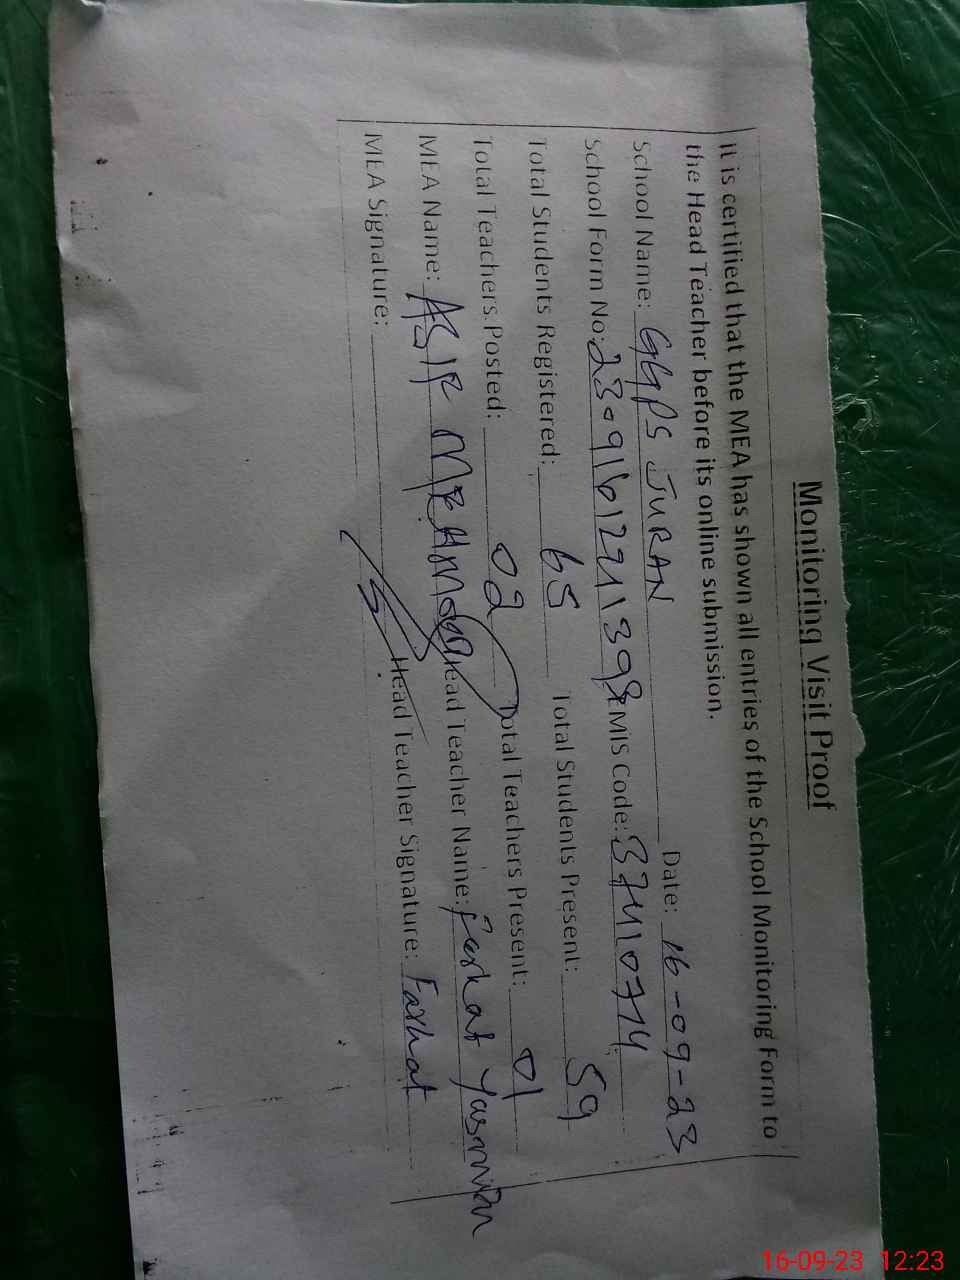 Monitoring Visit Proof
It is certified that the MEA has shown all entries of the School Monitoring Form to
the Head Teacher before its online submission.
School Name: GGPS JURAN Date: 16-09-23
School Form No: 2309161221398 EMIS Code: 37410774
Total Students Registered: 65 Total Students Present: 59
Total Teachers Posted: 02 Total Teachers Present: 01
MEA Name: ASIF MEHMOOD Head Teacher Name: Farhat Yasmeen
MEA Signature: Head Teacher Signature: Farhat
16-09-23 12:23